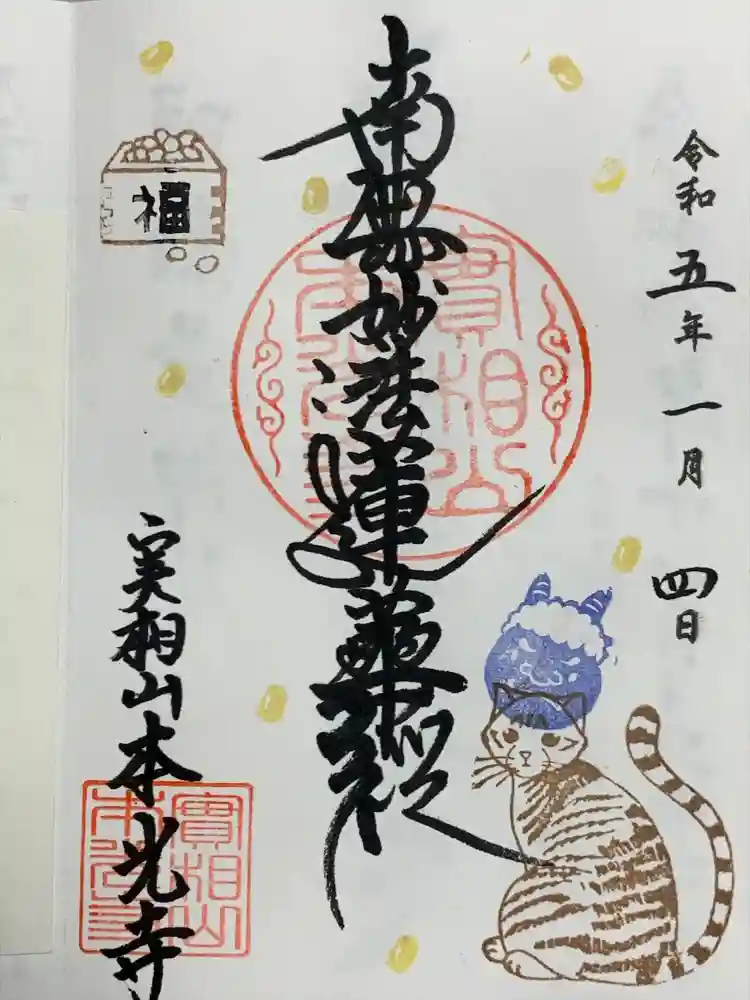 令和五年一月四日
南無妙法蓮華経
實相山
本光寺
福
実相山本光寺
實相山
本光寺